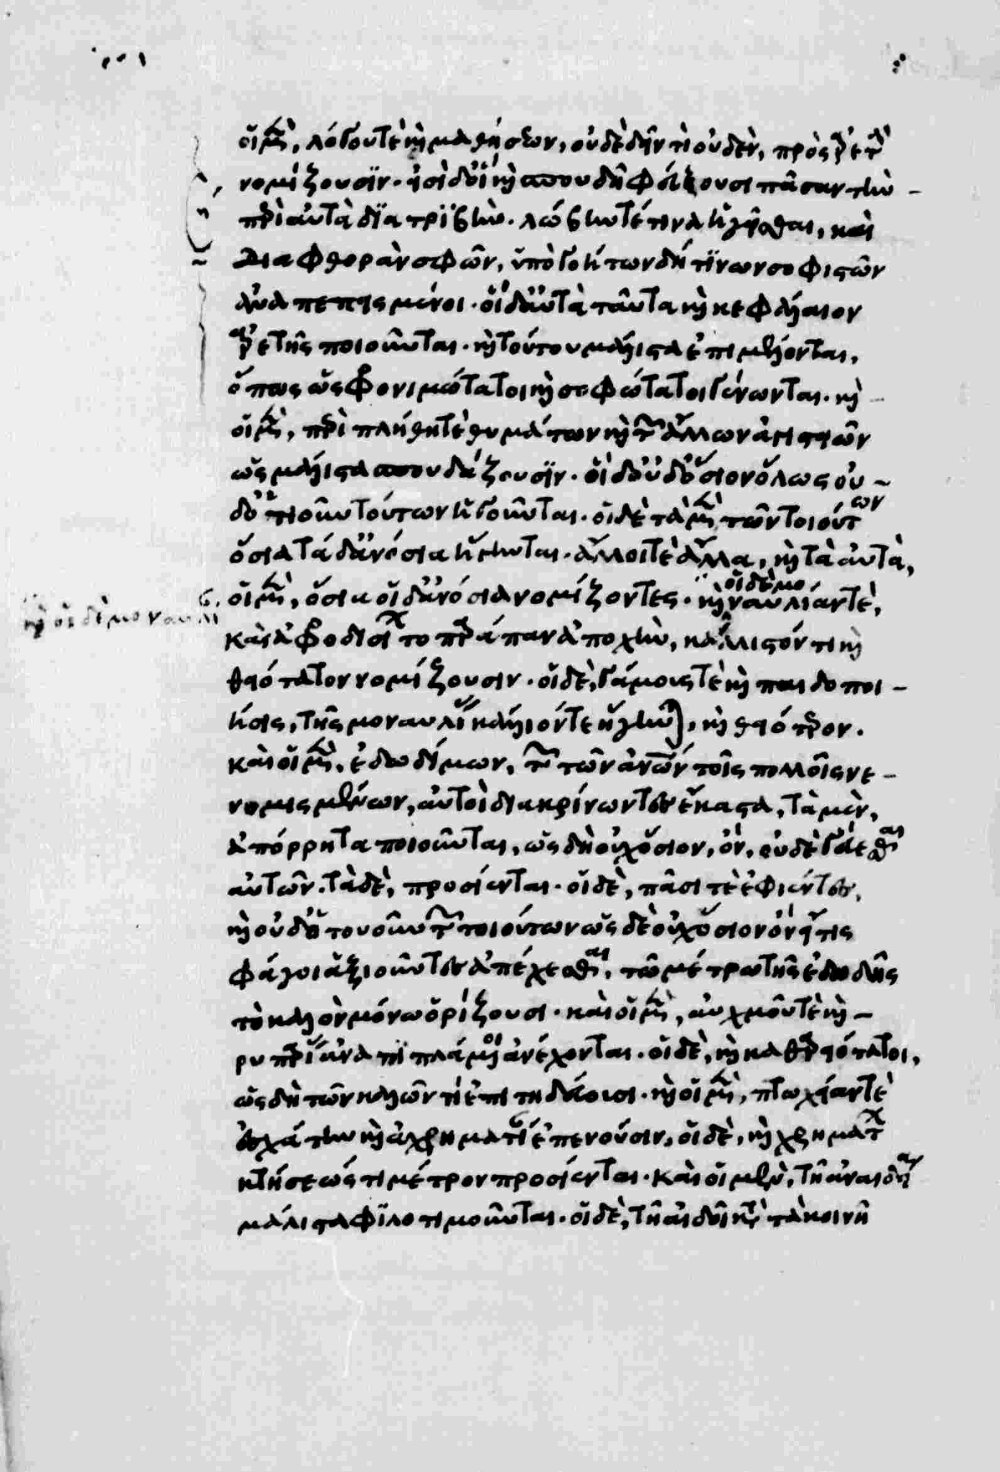 οἱ μὲν, λόγου τὲ καὶ μαθήσεων, οὐδὲ δῆν τι οὐδὲν, πρὸς ἀρετὴν
νομίζουσιν. εἰσὶ δ' οἳ καὶ σπουδῇ φεύγουσι πᾶσαν τὴν
περὶ αὐτὰ διατριβὴν. λώβην τέ τινα ἡγεῖσθαι, καὶ
διαφθορὰν σφῶν, ὑπὸ γοήτων δή τινων σοφιστῶν
ἀναπεπεισμένοι. οἱ δ' αὐτὰ ταῦτα καὶ κεφάλαιον
ἀρετῆς ποιοῦνται. καὶ τούτου μάλιστα ἐπιμέλονται,
ὅπως ὡς φρονιμώτατοι καὶ σοφώτατοι γένωνται. καὶ
οἱ μὲν, περὶ πλήθη τὲ θυμάτων καὶ τῶν ἄλλων ἁγιστειῶν
ὡς μάλιστα σπουδάζουσιν. οἱ δ' οὐδ' ὅσιον ὅλως οὐ
δ' ὁτιοῦν τούτων ἡγοῦνται. οἱ δὲ τὰ μὲν τῶν τοιούτων
ὅσια τὰ δ' ἀνόσια ἥγηνται. ἄλλοι τὲ ἄλλα, καὶ τὰ αὐτὰ,
οἱ μὲν, ὅσια οἱ δ' ἀνόσια νομίζοντες. καὶ οἱ δὲ μοναυλίαν τὲ,
καὶ οἱ δὲ μοναυλί
καὶ ἀφροδισίων τὸ παράπαν ἀποχὴν, κάλλιστόν τι καὶ
θειότατον νομίζουσιν. οἱ δὲ, γάμους τὲ καὶ παιδοποι
ήσεις, τῆς μοναυλίας κάλλιόν τε ἡγεῖσθαι, καὶ θειότερον.
καὶ οἱ μὲν, ἐδωδίμων, τῶν τῶν ἀνθρώπων τοῖς πολλοῖς νε
νομισμένων, αὐτοὶ διακρίνωντες ἕκαστα, τὰ μὲν,
ἀπόρρητα ποιοῦνται, ὡς δὴ οὐχ ὅσιον, ὂν, οὐδὲ γεύεσθαι
αὐτῶν. τὰ δὲ, προσίενται. οἱ δὲ, πᾶσι τὲ ἐφιέντες,
καὶ οὐδ' ὁτουοῦν τῶν τοιούτων ὡς δὲ οὐχ ὅσιον ὂν εἴ τις
φάγοι ἀξιοῦντες ἀπέχεσθαι, τῷ μέτρῳ τῆς ἐδωδῆς
τὸ καλὸν μόνω ὁρίζουσι. καὶ οἱ μὲν, αὐχμοῦ τὲ καὶ
ῥυπαρίας ἀναπιπλάμενοι ἀνέχονται. οἱ δὲ, καὶ καθαρειότατοι,
ὡς δὴ τῶν καλῶν τι ἐπιτηδεύουσι. καὶ οἱ μὲν, πτωχείαν τὲ
ἐσχάτην καὶ ἀχρηματίαν ἐπαινοῦσιν, οἱ δὲ, καὶ χρημάτων
κτήσεώς τι μέτρον προσίενται. καὶ οἱ μὲν, τῇ ἀναιδείᾳ
μάλιστα φιλοτιμοῦνται. οἱ δὲ, τῇ αἰδοῖ κατὰ τὰ κοινῇ